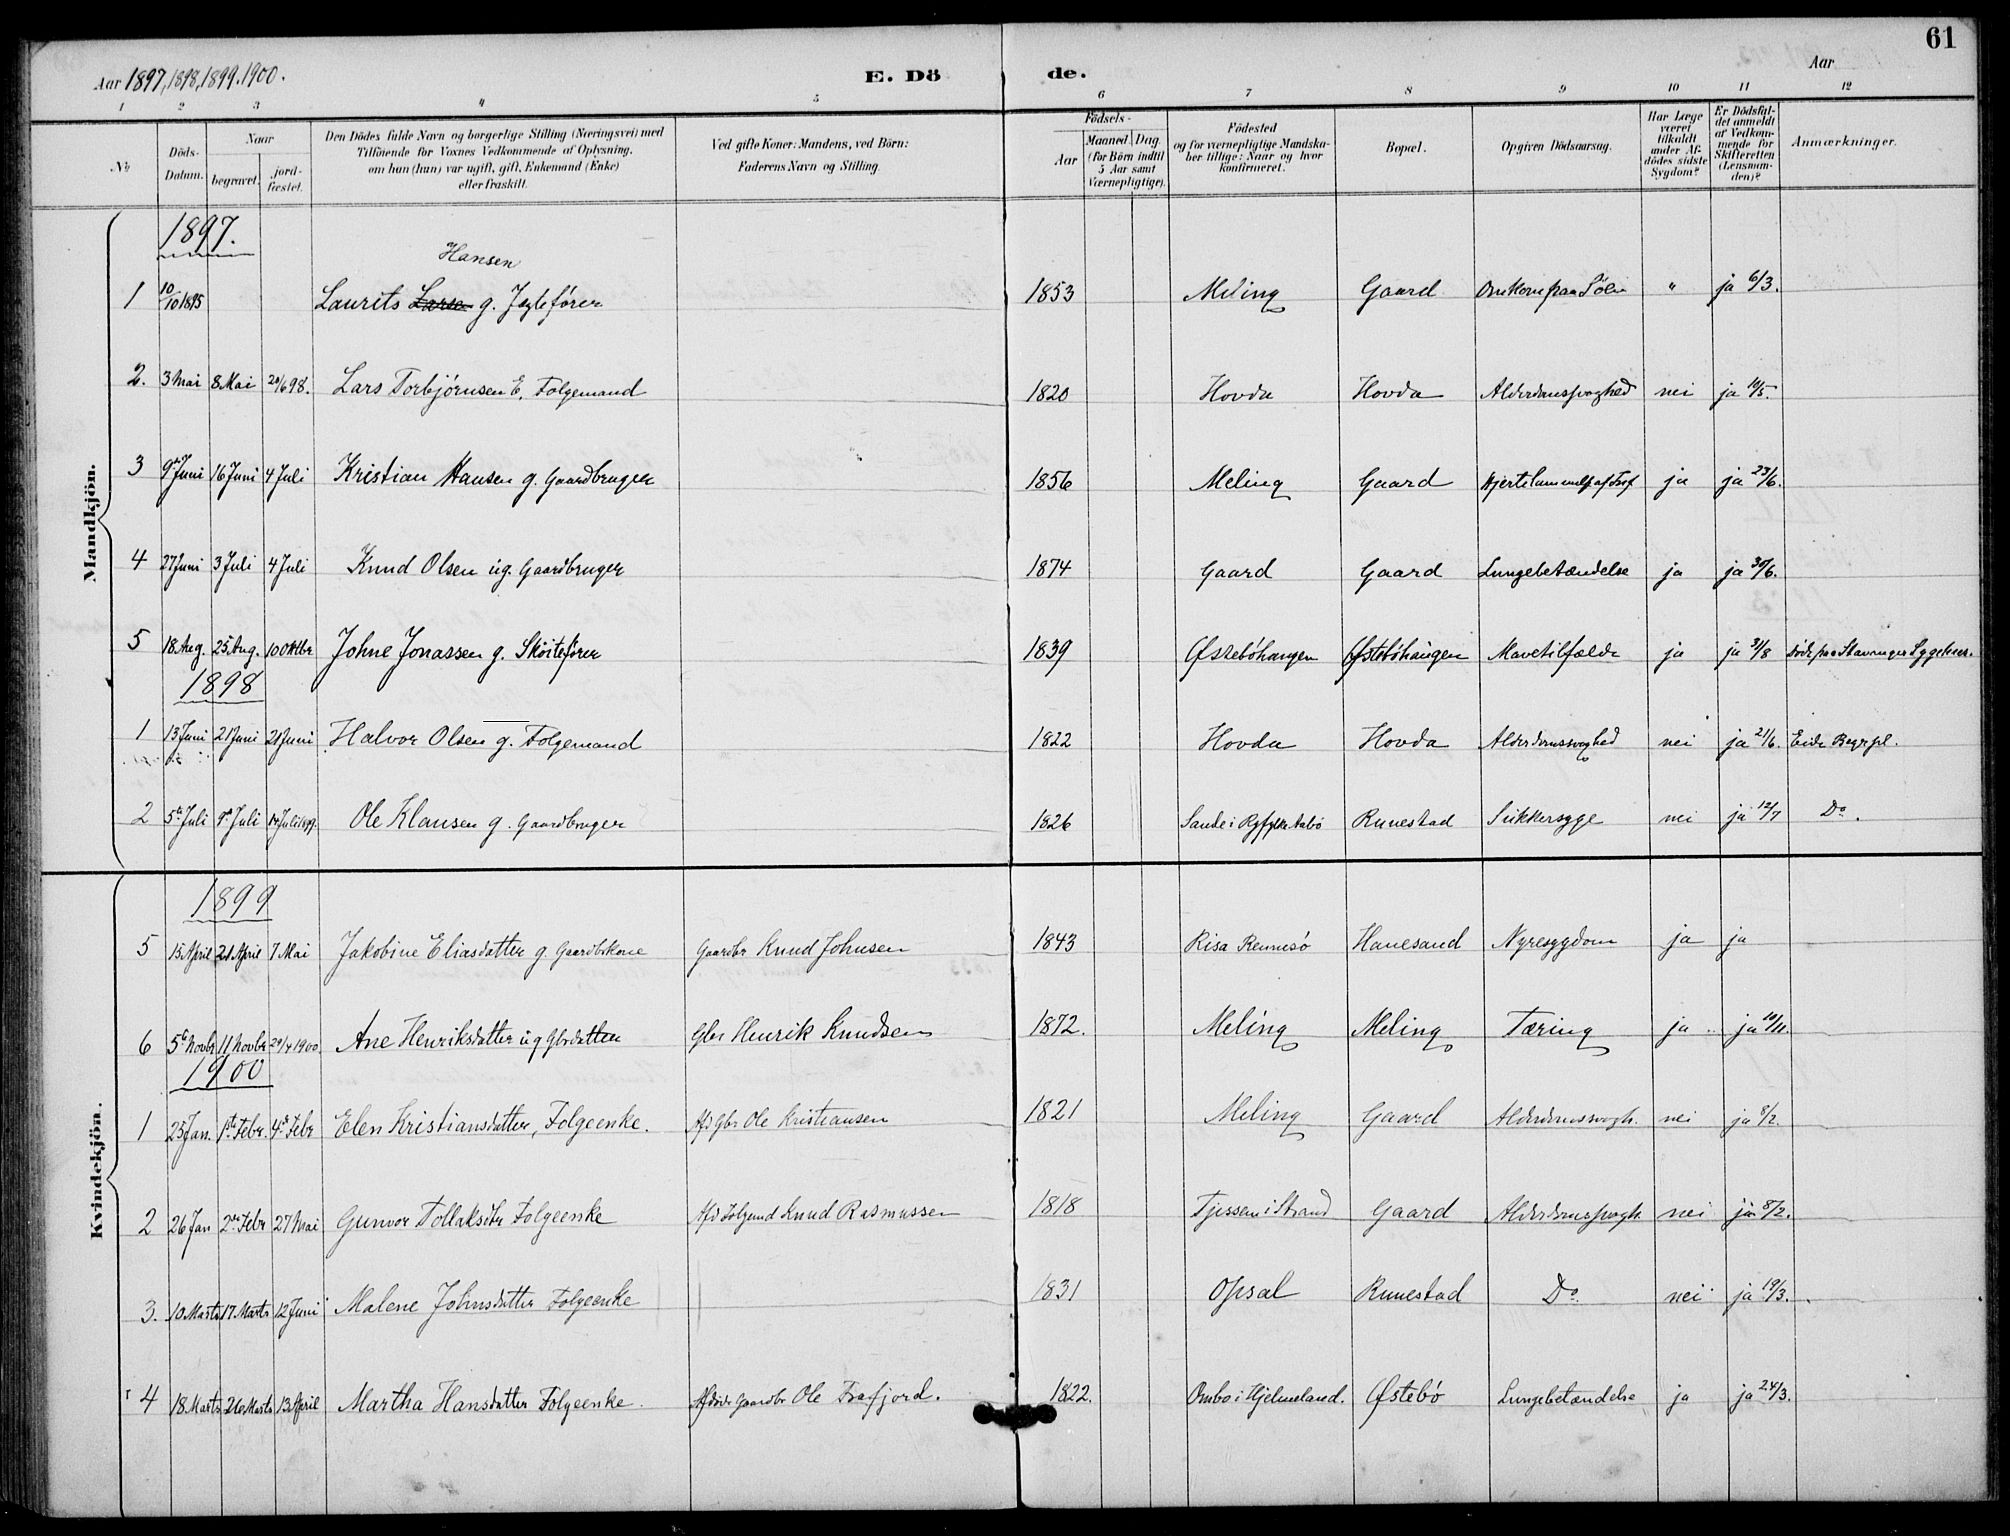 61
Aar 1897, 1898, 1899. 1900.
E. Dö
de.
Aar
1 2 3 4 5 6 7 8 9 10 11 12
No
Döds-Datum.
Naar
begravet.
jord-fæstet.
Den Dödes fulde Navn og borgerlige Stilling (Næringsvei) med
Tilföiende for Voxnes Vedkommende af Oplysning,
om han (hun) var ugift, gift, Enkemand (Enke)
eller fraskilt.
Ved gifte Koner: Mandens, ved Börn:
Faderens Navn og Stilling.
Födsels-
Aar
Maaned. Dag.
(for Börn indtil
5 Aar samt
Værnepligtige).
Födested
og for værnepligtige Mandska-
ber tillige: Naar og hvor
konfirmeret.
Bopæl.
Opgiven Dödsaarsag.
Har Læge
været
tilkaldt
under Af-
dödes sidste
Sygdom?
Er Dödsfal-
det anmeldt
af Vedkom-
mende for
Skifteretten
(Lensman-
den)?
Anmærkninger.
Mandkjön.
1897.
Hansen
1 10/10 1895 Laurits Larsen g. Jagtefører 1853 Meling Gaard Omkom paa Søen " ja 6/3.
2. 3 Mai 8 Mai 20/6 98. Lars Torbjørnsen E. Folgemand 1820 Hovda Hovda Alderdomssvaghed nei ja 10/5.
3 9de Juni 16 Juni 4 Juli Kristian Hansen g. Gaardbruger 1856 Meling Gaard Hjertelam ja ja 23/6.
4 27 Juni 3 Juli 4 Juli Knud Olsen ug. Gaardbruger 1874 Gaard Gaard Lungebetændelse ja ja 30/6.
5 18. Aug. 25 Aug. 10 Oktbr Johne Jonassen g. Skøitefører 1839 Østebøhaugen Østebøhaugen Mavetilfælde ja ja 31/8 døde paa Stavanger Sygehus.
1898
1 13 Juni 21 Juni 21 Juni Halvor Olsen g. Folgemand 1822 Hovda Hovda Alderdomssvaghed nei ja 21/6. Eide Begrpl.
2 5te Juli 9de Juli Juli 1899. Ole Klausen g. Gaardbruger 1826 Sande i Ryfylke Runestad Sukkersyge nei ja 12/7 Do.
Kvindekjön.
1899
5 15 April 21 April 7 Mai Jakobine Eliasdatter g. Gaardbkone Gaardbr Knud Johnsen 1843 Risa Rennesø Hanesand Nyresygdom ja ja
6 5te Novbr 11 Novbr 29/4 1900 Ane Henriksdatter ug Gbrdatter Gbr Henrik Knudsen 1872. Meling Meling Tæring ja ja 10/11.
1900
1 25 Jan. 1ste Febr. 4de Febr Elen Kristiansdatter, Folgeenke. Afd Gbr Ole Kristiansen 1821 Meling Gaard Alderdomssvagh. nei ja 8/2.
2 26 Jan 2den Febr 27 Mai Gunvor Tollaksdtr Folgeenke Afd Folgemd Knud Rasmussen 1818 Tjessem i Strand Gaard Alderdomssvagh. nei ja 8/2.
3. 10 Marts 17. Marts 12 Juni Malene Johnsdatter Folgeenke 1831 Opsal Runestad Do nei ja 19/3.
4 18 Marts 26 Marts 13 April Martha Hansdatter Folgeenke. Afdøde Gaardbr Ole Frafjord. 1822. Ombo i Hjelmeland. Østebø Lungebetændelse ja ja 24/3.